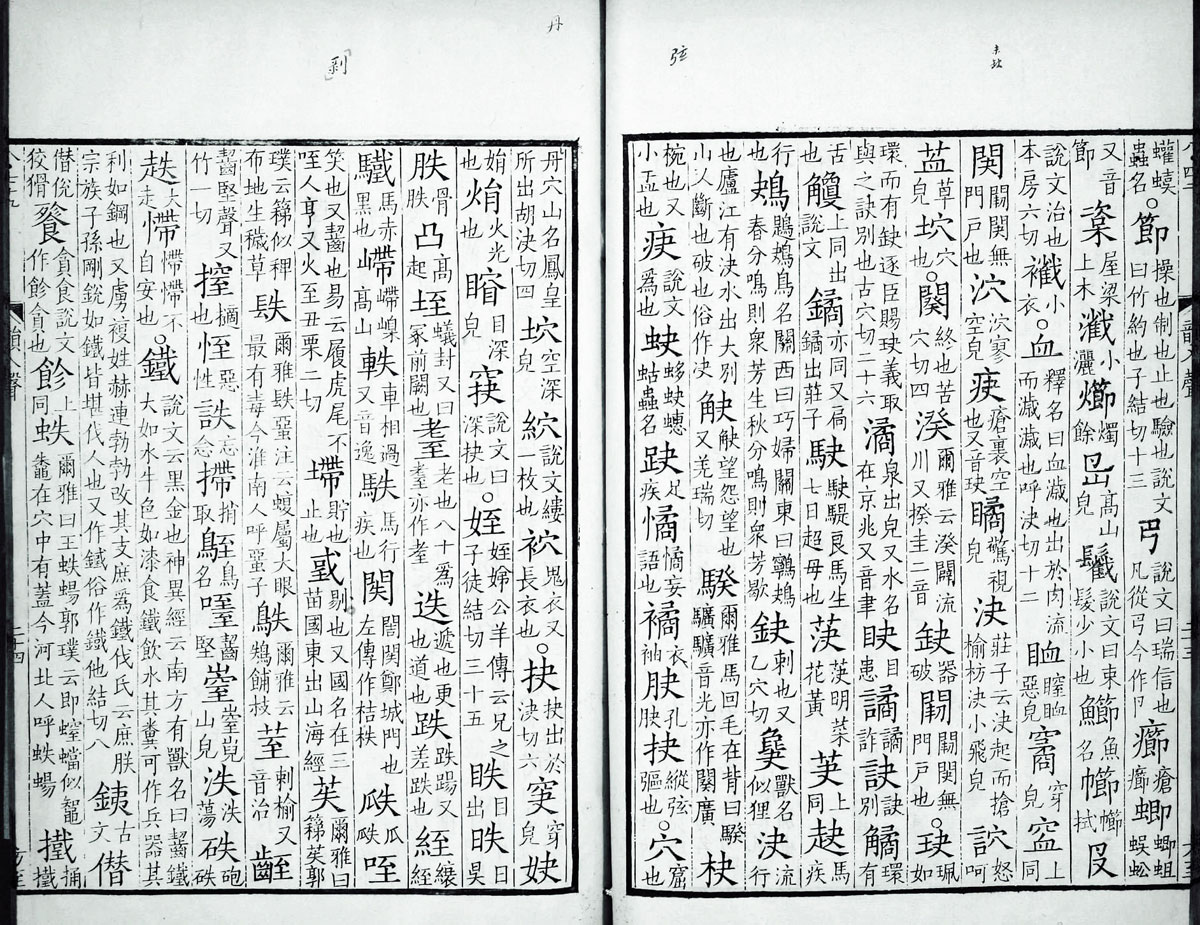 丹
剥
弦
蠽蟆蟲名○節操也制也止也驗也說文曰竹約也子結切十三卪說文曰瑞信也凡從卪今作卩癤瘡癤蝍蝍蛆蜈蚣
又音節楶屋梁上木瀸小灑㸅燭餘岊高山皃䰏說文曰束髮少小也䲙魚名幯幯拭𠬝
說文治也本房六切䙨小衣○血釋名曰血濊也出於肉流而濊濊也呼決切十二䀏瞲䀏惡皃窩穿皃䆝上同
闋闚闋無門戶也泬泬寥空皃疦瘡裏空也又音玦瞲驚視皃決莊子云決起而搶榆枋決小飛皃䚯怒呵
蒀草皃坹穴也○闋終也苦穴切四湀爾雅云湀闢流川又揆圭二音缺器破闚闚闋無門戶也○玦珮如
環而有缺逐臣賜玦義取與之訣別也古穴切二十六潏泉出皃又水名在京兆又音聿𥄴目患譎譎詐訣訣別觼環有
舌觼上同出說文鐍亦同又扃鐍出莊子駃駃騠良馬生七日超母也蒛蒛明菜花黃芵上同趹馬疾
行鴂鶗鴂鳥名關西曰巧婦關東曰鸋鴂春分鳴則衆芳生秋分鳴則衆芳歇鈌刺也又乙穴切㚠獸名似狸決流行
也廬江有決水出大別山又斷也破也俗作决觖觖望怨望也又羌瑞切騤爾雅馬回毛在背曰騤驥驥音光亦作闋廣䊽
椀也又小盂也疦說文爲也蚗蛥蚗蟪蛄蟲名趹足疾憰憰妄語也襭衣袖䏐孔䏐抉縱弦彄也○穴窟也
丹穴山名鳳皇所出胡決切四坹空深袕說文縷一枚也袕鬼衣又長衣也○抉抉出於決切六穾穿皃妜
娟也焆火光也䁂目深皃窫說文曰深抉也○姪姪婦公羊傳云兄之子徒結切三十五眣目出昳日昃
胅骨胅凸高起垤蟻封又曰冢前闕也耋老也八十爲耋亦作耊迭遞也更也道也跌跌踢又差跌也絰縗絰
驖馬赤黑也嵽嵽嵲高山軼車相過又音逸䮢馬行疾也闋閶闋鄭城門也左傳作桔柣瓞瓜瓞咥
笑也又齧也易云履虎尾不咥人亨又火至丑栗二切墆貯也止也䳀剔也又國名在三苗國東出山海經苵爾雅曰蕛苵郭
璞云蕛似稗布地生穢草镻爾雅镻蝁注云蝮屬大眼最有毒今淮南人呼蝁子鴩爾雅云鴩餔枝荎刺榆又音治䶝
齧堅聲又竹一切挃擿也恎惡性詄忘也㩹捎取鵄鳥名噎齧堅嵳嵳嵬山皃泆泆蕩砄砲砄
趃大走㦅㦅㦅不自安也○鐵說文云黑金也神異經云南方有獸名曰齧鐵大如水牛色如漆食鐵飲水其糞可作兵器其
利如鋼也又虜複姓赫連勃勃改其支庶爲鐵伐氏云庶朕宗族子孫剛銳如鐵皆堪伐人也又作䥫俗作鐵他結切八銕古文僣
僣侻狡猾飻貪食說文作飻貪也飻上同蛈爾雅曰王蛈蝪郭璞云即螲蟷似䵹鼄在穴中有蓋今河北人呼蛈蝪㩹捅㩹